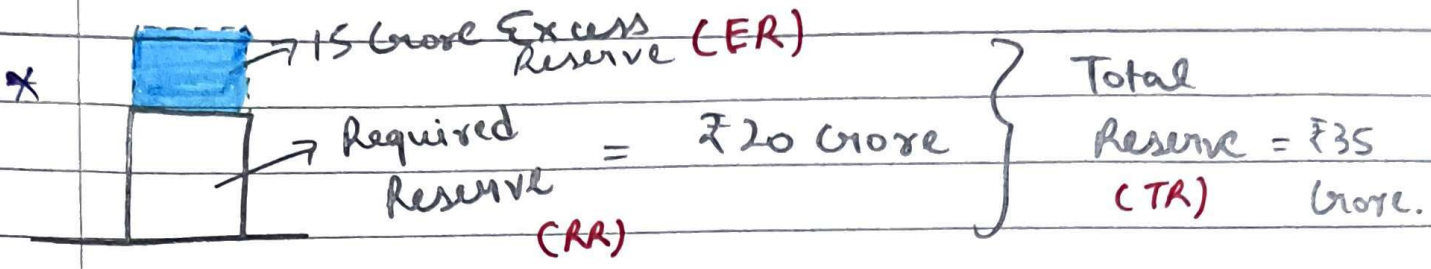 15 Crore Excess Reserve (ER)
Required Reserve (RR) = ₹20 Crore
Total Reserve (TR) = ₹35 Crore.